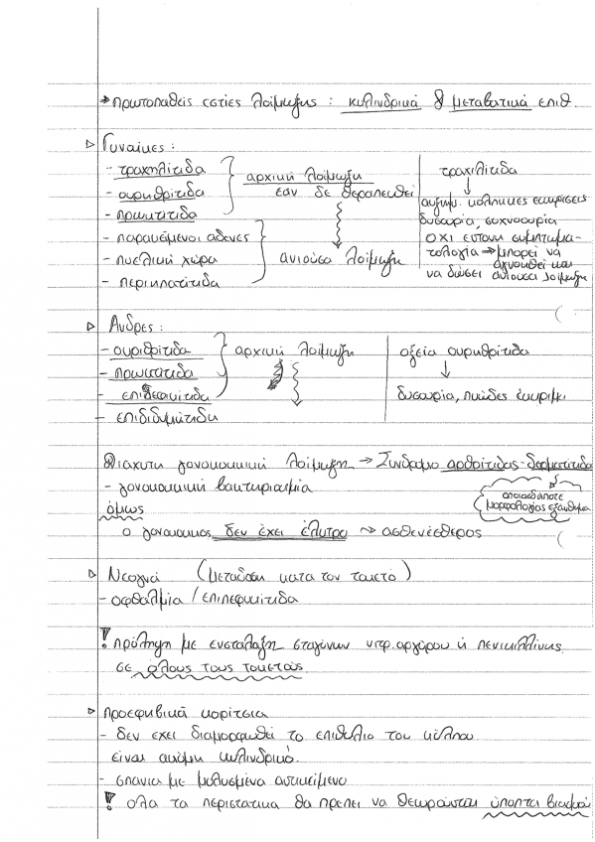 → πρωτοπαθείς εστίες λοίμωξης : κυλινδρικά & μεταβατικά επιθ.
▷ Γυναίκες :
- τραχηλίτιδα
- ουρηθρίτιδα
- πρωκτίτιδα
- παραουρηθραίοι αδένες
- πυελική χώρα
- περιηπατίτιδα
αρχική λοίμωξη
εάν δε θεραπευθεί
ανιούσα λοίμωξη
τραχιλίτιδα
αυξημ. κολπικές εκκρίσεις
δυσουρία, συχνουρία
όχι έντονη συμπτωμα-
τολογία → μπορεί να
αγνοηθεί και
να δώσει ανιούσα λοίμωξη
▷ Άνδρες :
- ουριθρίτιδα
- πρωκτίτιδα
- επιδιδυμίτιδα
αρχική λοίμωξη
οξεία ουρηθρίτιδα
δυσουρία, πυώδες έκκριμα
Διάχυτη γονοκοκκική λοίμωξη → Σύνδρομο αρθρίτιδας-δερματίτιδα
- γονοκοκκική βακτηριαιμία
οποιασδήποτε
μορφολογίας εξάνθημα
όμως
ο γονόκοκκος δεν έχει έλυτρο → ασθενέστερος
▷ Νεογνά (μετάδοση κατά τον τοκετό)
- οφθαλμία / επιπεφυκίτιδα
! πρόληψη με ενστάλαξη σταγόνων νιτρ. αργύρου ή πενικιλλίνης
σε όλους τους τοκετούς
▷ προεφηβικά κορίτσια
- δεν έχει διαμορφωθεί το επιθήλιο του κόλπου
είναι ακόμη κυλινδρικό.
- σπάνια με μολυσμένα αντικείμενα
! όλα τα περιστατικά θα πρέπει να θεωρούνται ύποπτα βιασμού